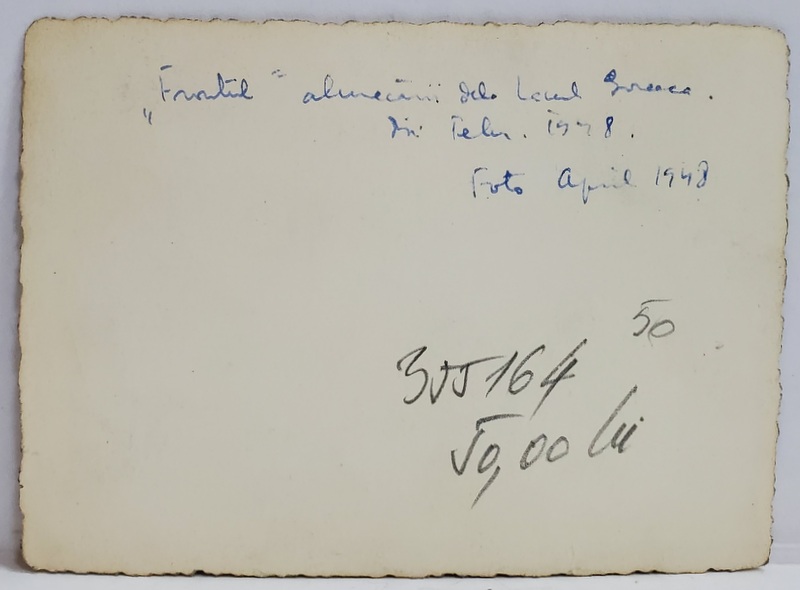 „Frontul” alunecării dela Lacul
din Febr. 1948.
Foto April 1948
50
355164
50,00 lei